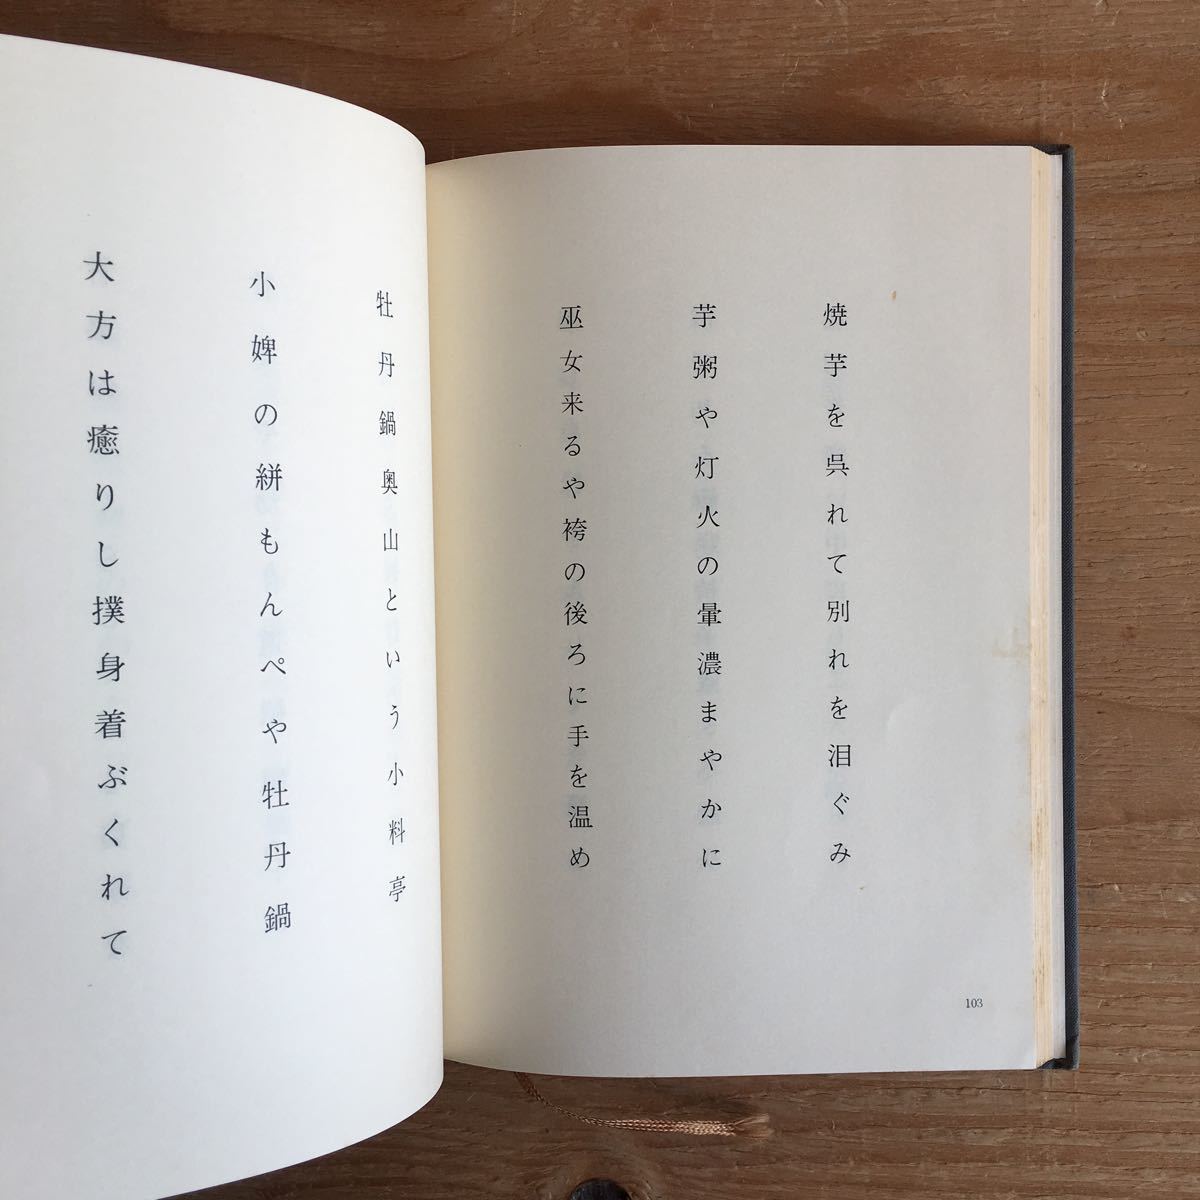 焼芋を呉れて別れを泪ぐみ
芋粥や灯火の暈濃まやかに
巫女来るや袴の後ろに手を温め
103
牡丹鍋奥山という小料亭
小婢の絣もんぺや牡丹鍋
大方は癒りし撲身着ぶくれて